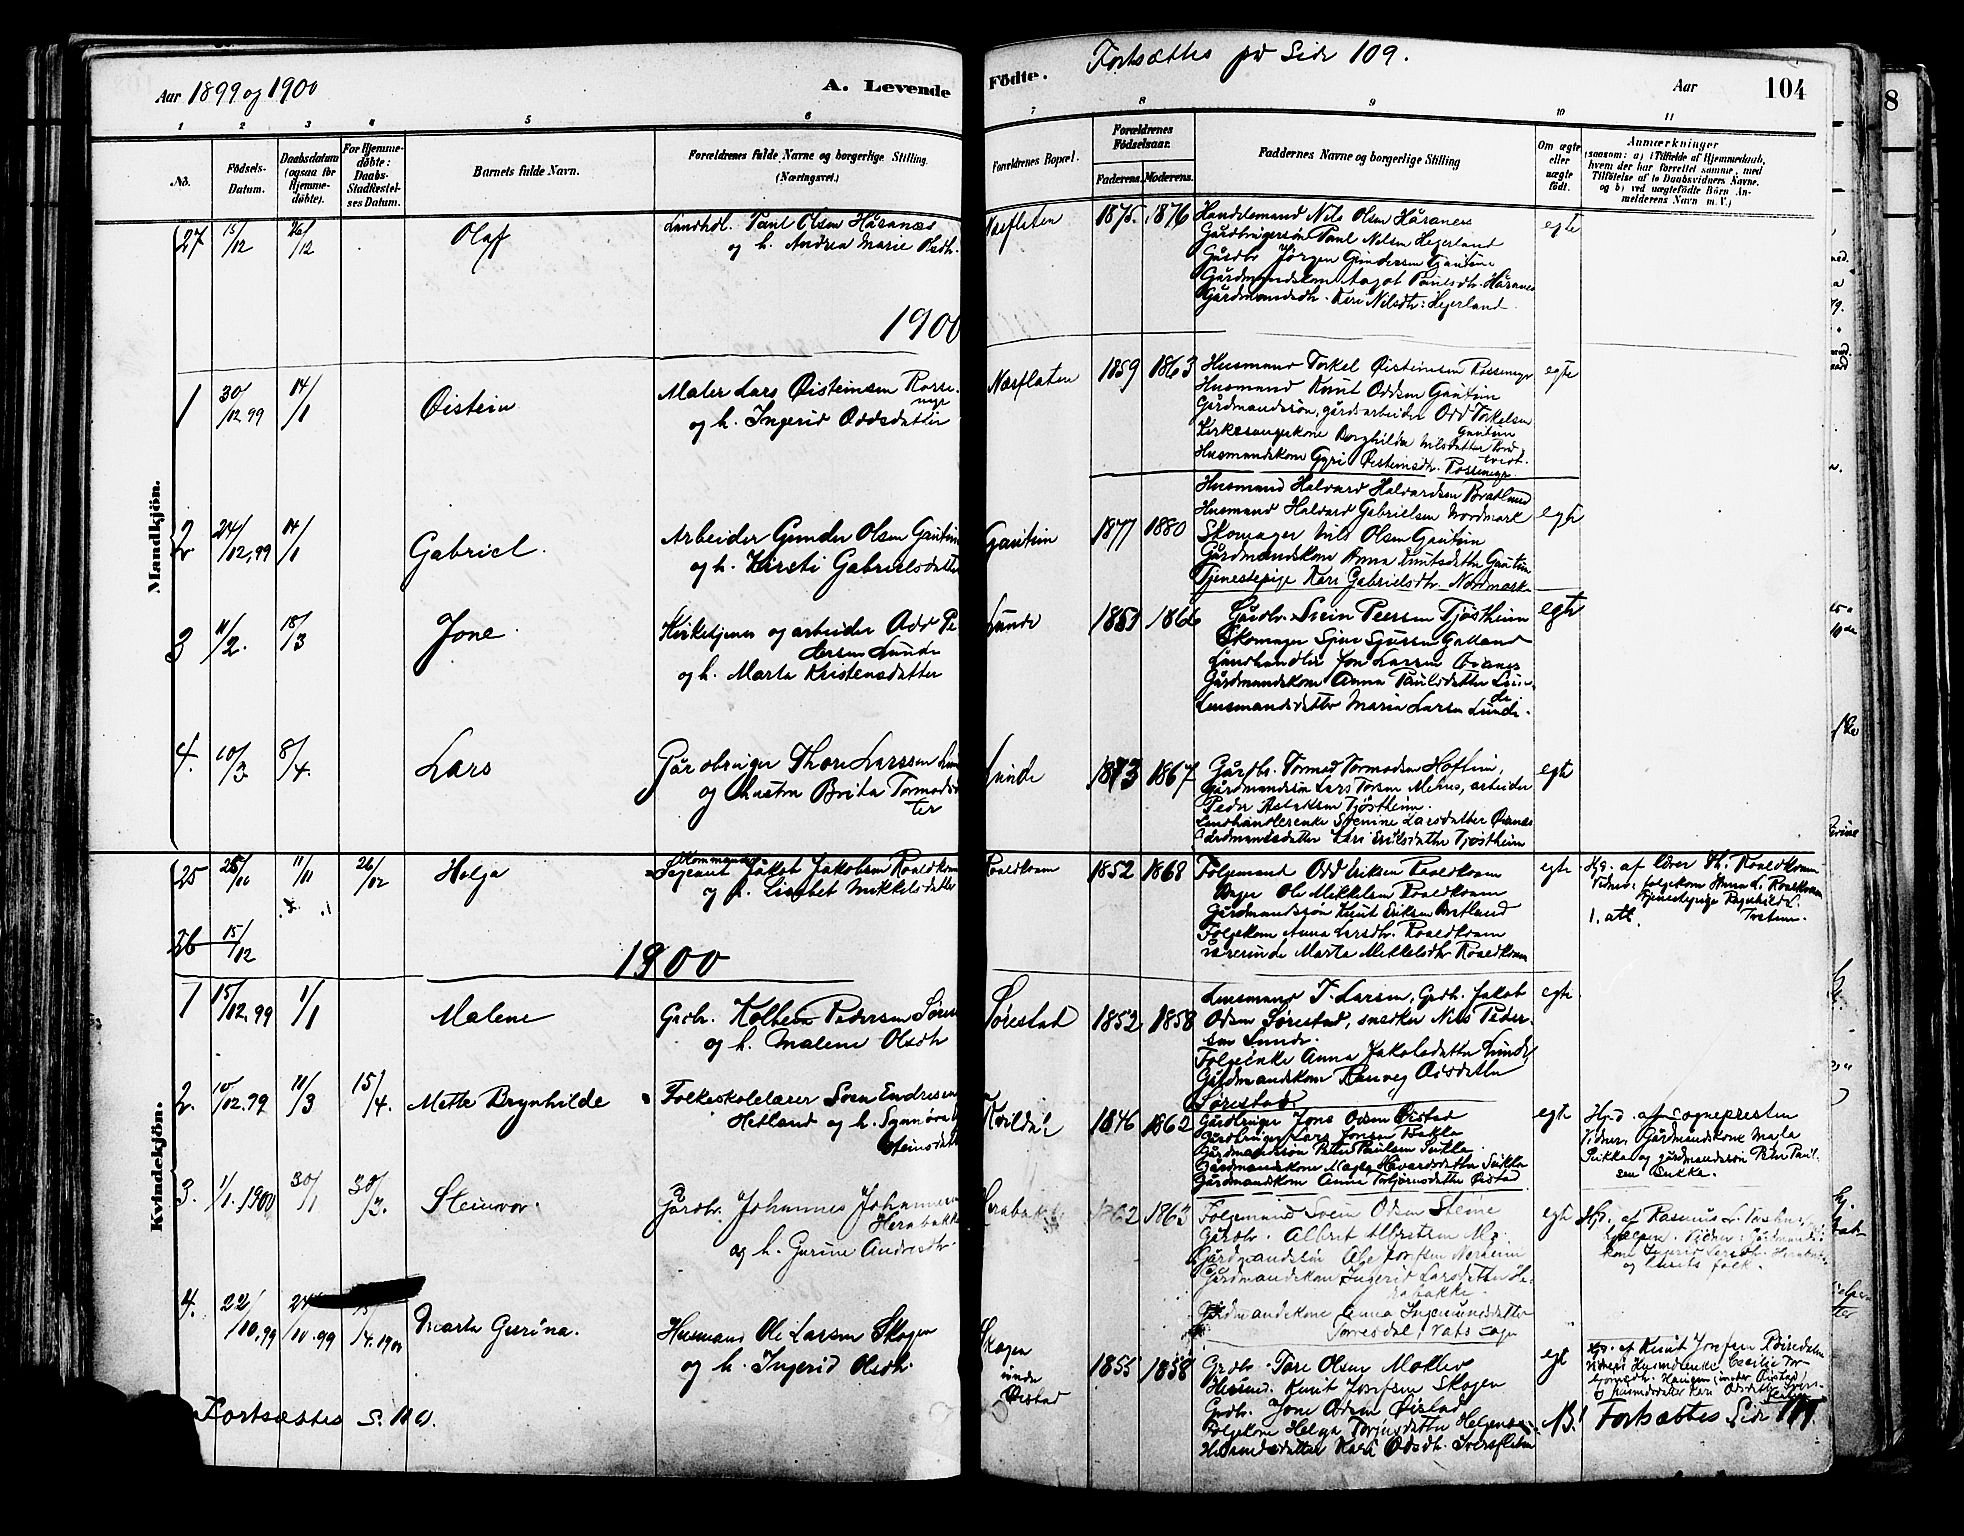 Aar 1899 og 1900
A. Levende
Födte.
Fortsættes på Side 109.
Aar
104
8
1 2 3 4 5 6 7 8 9 10 11
No.
Födsels-
Datum.
Daabsdatum
(ogsaa for
Hjemme-
döbte).
For Hjemme-
döbte:
Daabs-
Stadfæstel-
ses Datum.
Barnets fulde Navn.
Forældrenes fulde Navne og borgerlige Stilling.
(Næringsvei.)
Forældrenes Bopæl.
Forældrenes
Födselsaar.
Faderens. Moderens.
Faddernes Navne og borgerlige Stilling
Om ægte
eller
uægte
födt.
Anmærkninger
(saasom: a) i Tilfælde af Hjemmedaab,
hvem der har forrettet samme, med
Tilföielse af to Daabsvidners Navne,
og b) ved uægtefödte Börn An-
melderens Navn m. V.)
Mandkjön.
27 15/12 26/12 Olaf
Landhdl. Paul Olsen Håsanæs
og h. Andrea Marie Olsdtr.
Næsflaten 1875. 1876
Handelsmand Nils Olsen Håranæs
Gårdbrugersøn Paul Nilsen Hegerland
Gårdbr Jörgen Gundersen Gautun
Gårdmandskone Aagot Paulsdtr. Håranæs
Gårdmandsdtr. Kari Nilsdtr: Hegerland.
egte
1900
1 30/12 99 14/1 Øistein
Maler Lars Øisteinsen Rosse-
myr
og h. Ingerid Oddsdatter
Næsflaten 1859 1863
Husmand Torkel Øisteinsen Rossemyr
Husmand Knut Oddsen Gautun
Gårdmandssøn, gårdsarbeider Odd Torkelsen
Gautun
Kirkesangerkone Borghilda Nilsdatter
Husmandskone Gyri Øisteinsdtr. Rossemyr
egte
2 24/12,99 14/1 Gabriel.
Arbeider Gunder Olsen Gautun
og h. Kirsti Gabrielsdatter
Gautun 1877 1880
Husmand Halvard Halvardsen Bratland
Husmand Halvard Gabrielsen Nordmark
Skomager Nils Olsen Gautun
Gårdmandskone Anna Knutsdatter Gautun
Tjenestepige Kari Gabrielsdtr. Nordmark
egte
3 11/2. 18/3 Jone.
Kirketjener og arbeider Odd Pe-
dersen Lunde
og h. Marta Kristensdatter
Lunde 1859 1866
Gårdbr. Svein Peersen Tjöstheim
Skomager Sjur Sjursen Galland
Landhandler Jon Larsen Øvanes
Gårdmandskone Anna Paulsdatter Lun-
de
Lensmandsdatter Maria Larsen Lunde.
egte
4. 10/3 8/4. Lars
Gårdbruger Thore Larssen Lunde
og hustru Brita Tormods-
ter
Lunde 1873 1867
Gårdbr. Tormod Tormodsen Hoftun,
Gårdmandssøn Lars Torsen Melnes, arbeider
Peder Aslaksen Tjöstheim.
Landhandlerenke Severine Larsdatter Øvanes
Gårdmandsdatter Kari Eriksdatter Tjöstheim
egte
Kvindekjön.
25 25/10 11/11 26/12 Helga
Kommandør
Sergeant Jakob Jakobsen Roaldkvam
og h. Lisabet Mikkelsdatter
Roaldkvam 1852 1868
Følgemand Odd Eiriksen Roaldkvam
Ungk. Ole Mikkelsen Roaldkvam
Gårdmandssøn Knut Eriksen Bratland
Følgekone Anna Larsdtr. Roaldkvam
Marta Mikkelsdtr Roaldkvam
egte
Hjd. af Th. Roaldkvam
Vidner: følgekone Anna L. Roaldkvam
Tjenestepige Ragnhilda
1. att.
26 15/12
1900
1 15/12,99 1/1 Malene
Grdbr. Kolbein Pedersen Sørestad
og h. Malene Olsdtr
Sørestad 1852 1858
Lensmand T. Larsen, Grdb. Jakob
Odsen Sørestad, snedker Nils Peder-
sen Lunde.
Følgeenke Anna Jakobsdatter Lunde,
Gårdmandskone Ranveig Odsdatter
Sørestad.
egte
2. 10/12.99 11/3 15/4. Mette Brynhilde
Folkeskolelærer Sven Endresen
Hetland og h. Synnöva
Steinsdatter
1846 1862
Gårdbruger Jone Odsen Øistad
Gårdbruger Lars Jonsen Bakka
Gårdmandssøn Peter Paulsen Sukka
Gårdmandskone Magla Håvardsdatter Sukka
Gårdmandskone Anna Torbjørnsdatter Øistad
egte
Hjd. af sognepresten
Vidner: Gårdmandskone Magla
Sukka og gårdmandssøn Peter Paul-
sen Sukka.
3. 1/1.1900 30/1 30/3. Steinvor.
Gårdbr. Johannes Johannesen
Herabakke
og h. Gurine Andresdtr.
Herabakke 1862 1863
Følgemand Svein Odsen Steine
Gårdbr. Albret Albretsen
Gårdmandssøn Ole Josefsen Nerheim
Gårdmandskone Ingerid Larsdatter He-
rabakke.
Gårdmandskone Anna Ingemundsdatter
Torresdal, Vats sogn
egte
Hjd. af Rasmus
Vidner: Gårdmands-
kone Ingerid Larsdtr. Herabak-
og husets folk.
4. 22/10,99 24/10.99 15/4.1900 Marta Gurina.
Husmand Ole Larsen Skogen
og h. Ingerid Olsdtr
Skogen
under
Øistad
1855 1858
Grdbr. Tore Olsen Mokleiv
Husmd. Knut Josefsen Skogen
Grdbr. Jone Odsen Øistad
Følgekone Helga Torjusdatter Helgenes
Husmandsdatter Kari Odsdtr.
egt
Hjd. af Knut Josefsen
Vidner: Husmdenke Cecilie Tor-
bjørnsdtr. Haugen (under Øistad)
og husmdsdatter Kari Odsdatter
Fortsættes S. 110.
NB! Fortsættes Side 111